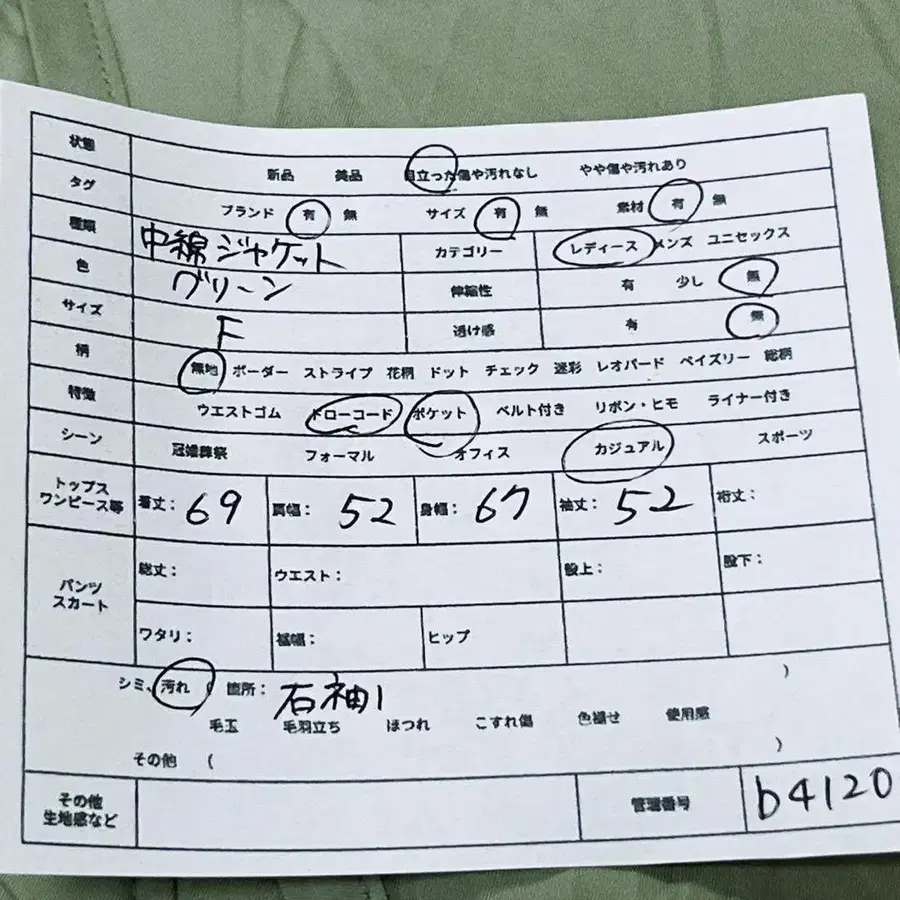 状態 新品 美品 目立った傷や汚れなし やや傷や汚れあり
タグ ブランド 有 無 サイズ 有 無 素材 有 無
種類 中綿ジャケット カテゴリー レディース メンズ ユニセックス
色 グリーン 伸縮性 有 少し 無
サイズ F 透け感 有 無
柄 無地 ボーダー ストライプ 花柄 ドット チェック 迷彩 レオパード ペイズリー 総柄
特徴 ウエストゴム ドローコード ポケット ベルト付き リボン・ヒモ ライナー付き
シーン 冠婚葬祭 フォーマル オフィス カジュアル スポーツ
トップス
ワンピース等 着丈: 69 肩幅: 52 身幅: 67 袖丈: 52 裄丈:
パンツ
スカート 総丈: ウエスト: 股上: 股下:
ワタリ: 裾幅: ヒップ
シミ、汚れ ( 箇所: 右袖1 )
毛玉 毛羽立ち ほつれ こすれ傷 色褪せ 使用感
その他 ( )
その他
生地感など 管理番号 b4120